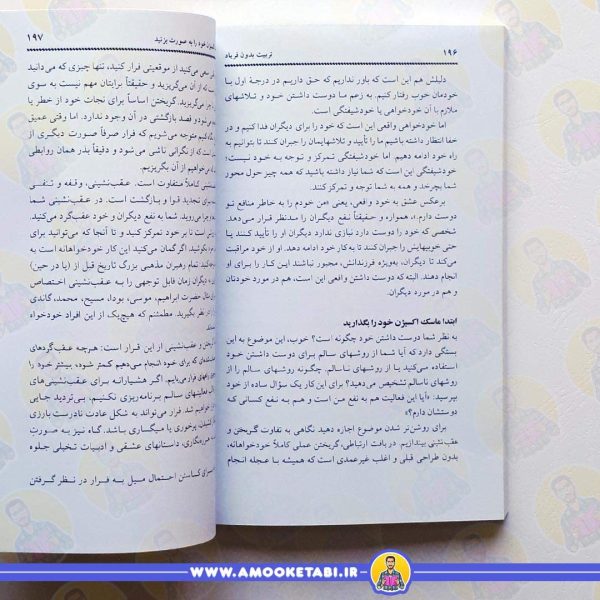 ۱۹۶
تربیت بدون فریاد
دلیلش هم این است که باور نداریم که حق داریم در درجهٔ اول با
خودمان خوب رفتار کنیم. به زعم ما دوست داشتن خود و تلاشهای
ملازم با آن خودخواهی یا خودشیفتگی است.
اما خودخواهی واقعی این است که خود را برای دیگران فدا کنیم و در
خفا انتظار داشته باشیم ما را تأیید و تلاشهایمان را جبران کنند تا بتوانیم به
راه خود ادامه دهیم. اما خودشیفتگی تمرکز و توجه به خود نیست؛
خودشیفتگی این است که شما نیاز داشته باشید که همه چیز حول محور
شما بچرخد و همه به شما توجه و تمرکز کنند.
برعکس عشق به خود واقعی، یعنی «من خودم را به خاطر منافع تو
دوست دارم.»، همواره و حقیقتاً نفع دیگران را مدنظر قرار می‌دهد.
شخصی که خود را دوست دارد نیازی ندارد دیگران او را تأیید کنند یا
حتی خوبیهایش را جبران کنند تا به کار خود ادامه دهد. او از خود مراقبت
می‌کند تا دیگران، به‌ویژه فرزندانش، مجبور نباشند این کار را برای او
انجام دهند. البته که دوست داشتن واقعی این است، هم در مورد خودتان
و هم در مورد دیگران.
ابتدا ماسک اکسیژن خود را بگذارید
به نظر شما دوست داشتن خود چگونه است؟ خوب، این موضوع به این
بستگی دارد که آیا شما از روشهای سالم برای دوست داشتن خود
استفاده می‌کنید یا از روشهای ناسالم. چگونه روشهای سالم را از
روشهای ناسالم تشخیص می‌دهید؟ برای این کار یک سؤال ساده از خود
بپرسید: «آیا این فعالیت هم به نفع من است و هم به نفع کسانی که
دوستشان دارم؟»
برای روشن‌تر شدن موضوع اجازه دهید نگاهی به تفاوت گریختن و
عقب‌نشینی بیندازیم. در بافت ارتباطی، گریختن عملی کاملاً خودخواهانه،
بدون طراحی قبلی و اغلب غیرعمدی است که همیشه با عجله انجام
خود را به صورت بزنید
۱۹۷
سعی می‌کنید از موقعیتی فرار کنید، تنها چیزی که می‌دانید
که از آن می‌گریزید و حقیقتاً برایتان مهم نیست به سوی
می‌گریزید. گریختن اساساً برای نجات خود از خطر یا
و قصد بازگشتی در آن وجود ندارد. اما وقتی عمیق
متوجه می‌شویم که فرار صرفاً صورت دیگری از
که از نگرانی ناشی می‌شود و دقیقاً بذر همان روابطی
از آن بگریزیم.
کاملاً متفاوت است. عقب‌نشینی، وقفه و تنفسی
برای تجدید قوا و بازگشت است. در عقب‌نشینی شما
شما به نفع دیگران و خود عقبگرد می‌کنید.
تا بر خود تمرکز کنید و تا آنجا که می‌توانید برای
اگر گمان می‌کنید این کار خودخواهانه است به
تمام رهبران مذهبی بزرگ تاریخ قبل از (یا در حین)
دیگران زمان قابل توجهی را به عقب‌نشینی اختصاص
حضرت ابراهیم، موسی، بودا، مسیح، محمد، گاندی
در نظر بگیرید. مطمئنم که هیچ‌یک از این افراد خودخواه
و عقب‌نشینی از این قرار است: هرچه عقب‌گردهای
برای خود انجام می‌دهیم کمتر شود، بیشتر خود را
فرار می‌یابیم. اگر هشیارانه برای عقب‌نشینی
فعالیتهای سالم برنامه‌ریزی نکنیم، بی‌تردید جایی
خواهیم شد. فرار می‌تواند به شکل عادت نادرست بارزی
پرخوری یا میگساری باشد. گاه نیز به صورت
داستانهای عشقی و ادبیات تخیلی جلوه
کاستن احتمال میل به فرار در نظر گرفتن
WWW.AMOOKETABI.IR